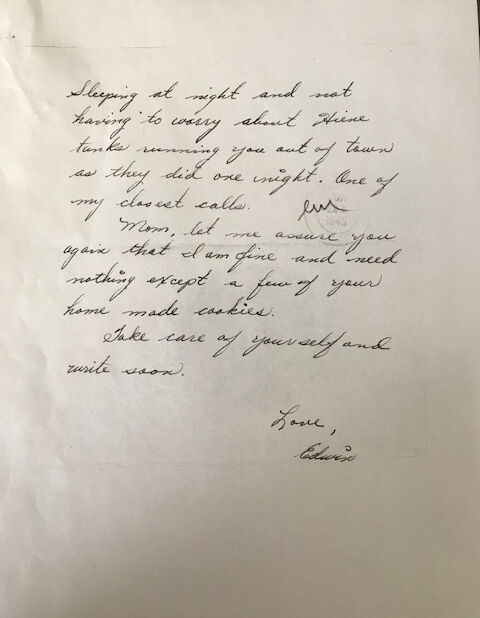 Sleeping at night and not
having to worry about Hiene
tanks running you out of town
as they did one night. One of
my closest calls.
Mom, let me assure you
again that I am fine and need
nothing except a few of your
home made cookies.
Take care of yourself and
write soon.
Love,
Edwin